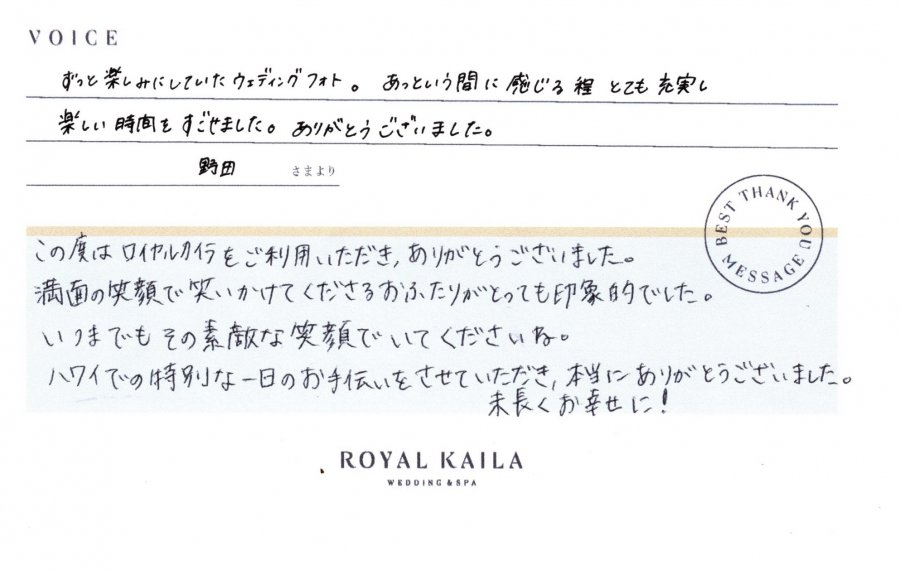 VOICE
ずっと楽しみにしていたウェディングフォト。 あっという間に感じる程とても充実し
楽しい時間をすごせました。ありがとうございました。
野田 さまより
BEST THANK YOU MESSAGE
この度はロイヤルカイラをご利用いただき,ありがとうございました。
満面の笑顔で笑いかけてくださるおふたりがとっても印象的でした。
いつまでもその素敵な笑顔でいてくださいね。
ハワイでの特別な一日のお手伝いをさせていただき,本当にありがとうございました。
末長くお幸せに!
ROYAL KAILA
WEDDING & SPA